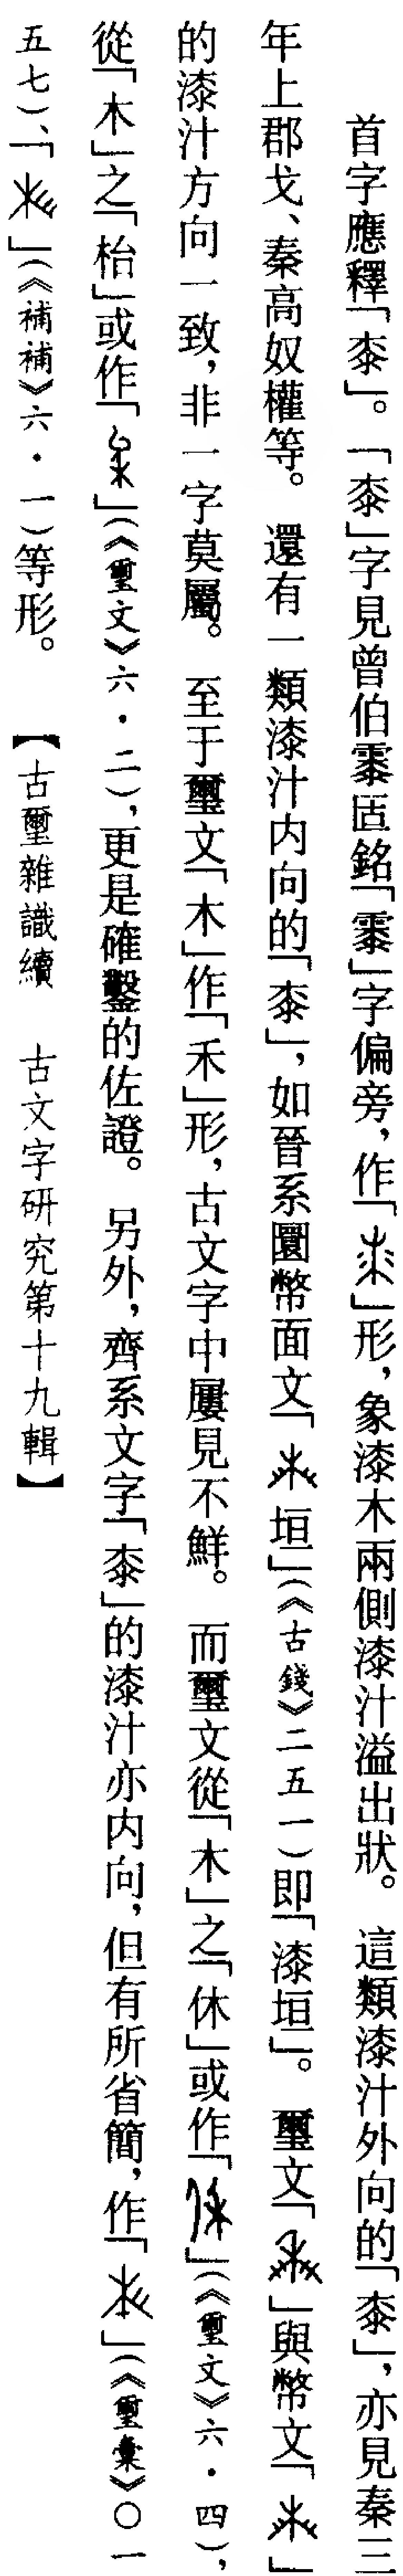 首字應釋「桼」。「桼」字見曾伯霥𠤳銘「霥」字偏旁，作「」形，象漆木兩側漆汁溢出狀。這類漆汁外向的「桼」，亦見秦三
年上郡戈、秦高奴權等。還有一類漆汁内向的「桼」，如晉系圜幣面文「垣」（《古錢》二五一）即「漆垣」。璽文「」與幣文「」
的漆汁方向一致，非一字莫屬。至于璽文「木」作「禾」形，古文字中屢見不鮮。而璽文從「木」之「休」或作「」（《璽文》六·四），
從「木」之「枱」或作「」（《璽文》六·二），更是確鑿的佐證。另外，齊系文字「桼」的漆汁亦内向，但有所省簡，作「」（《璽彙》〇一
五七）、「」（《補補》六·一）等形。【古璽雜識續　古文字研究第十九輯】